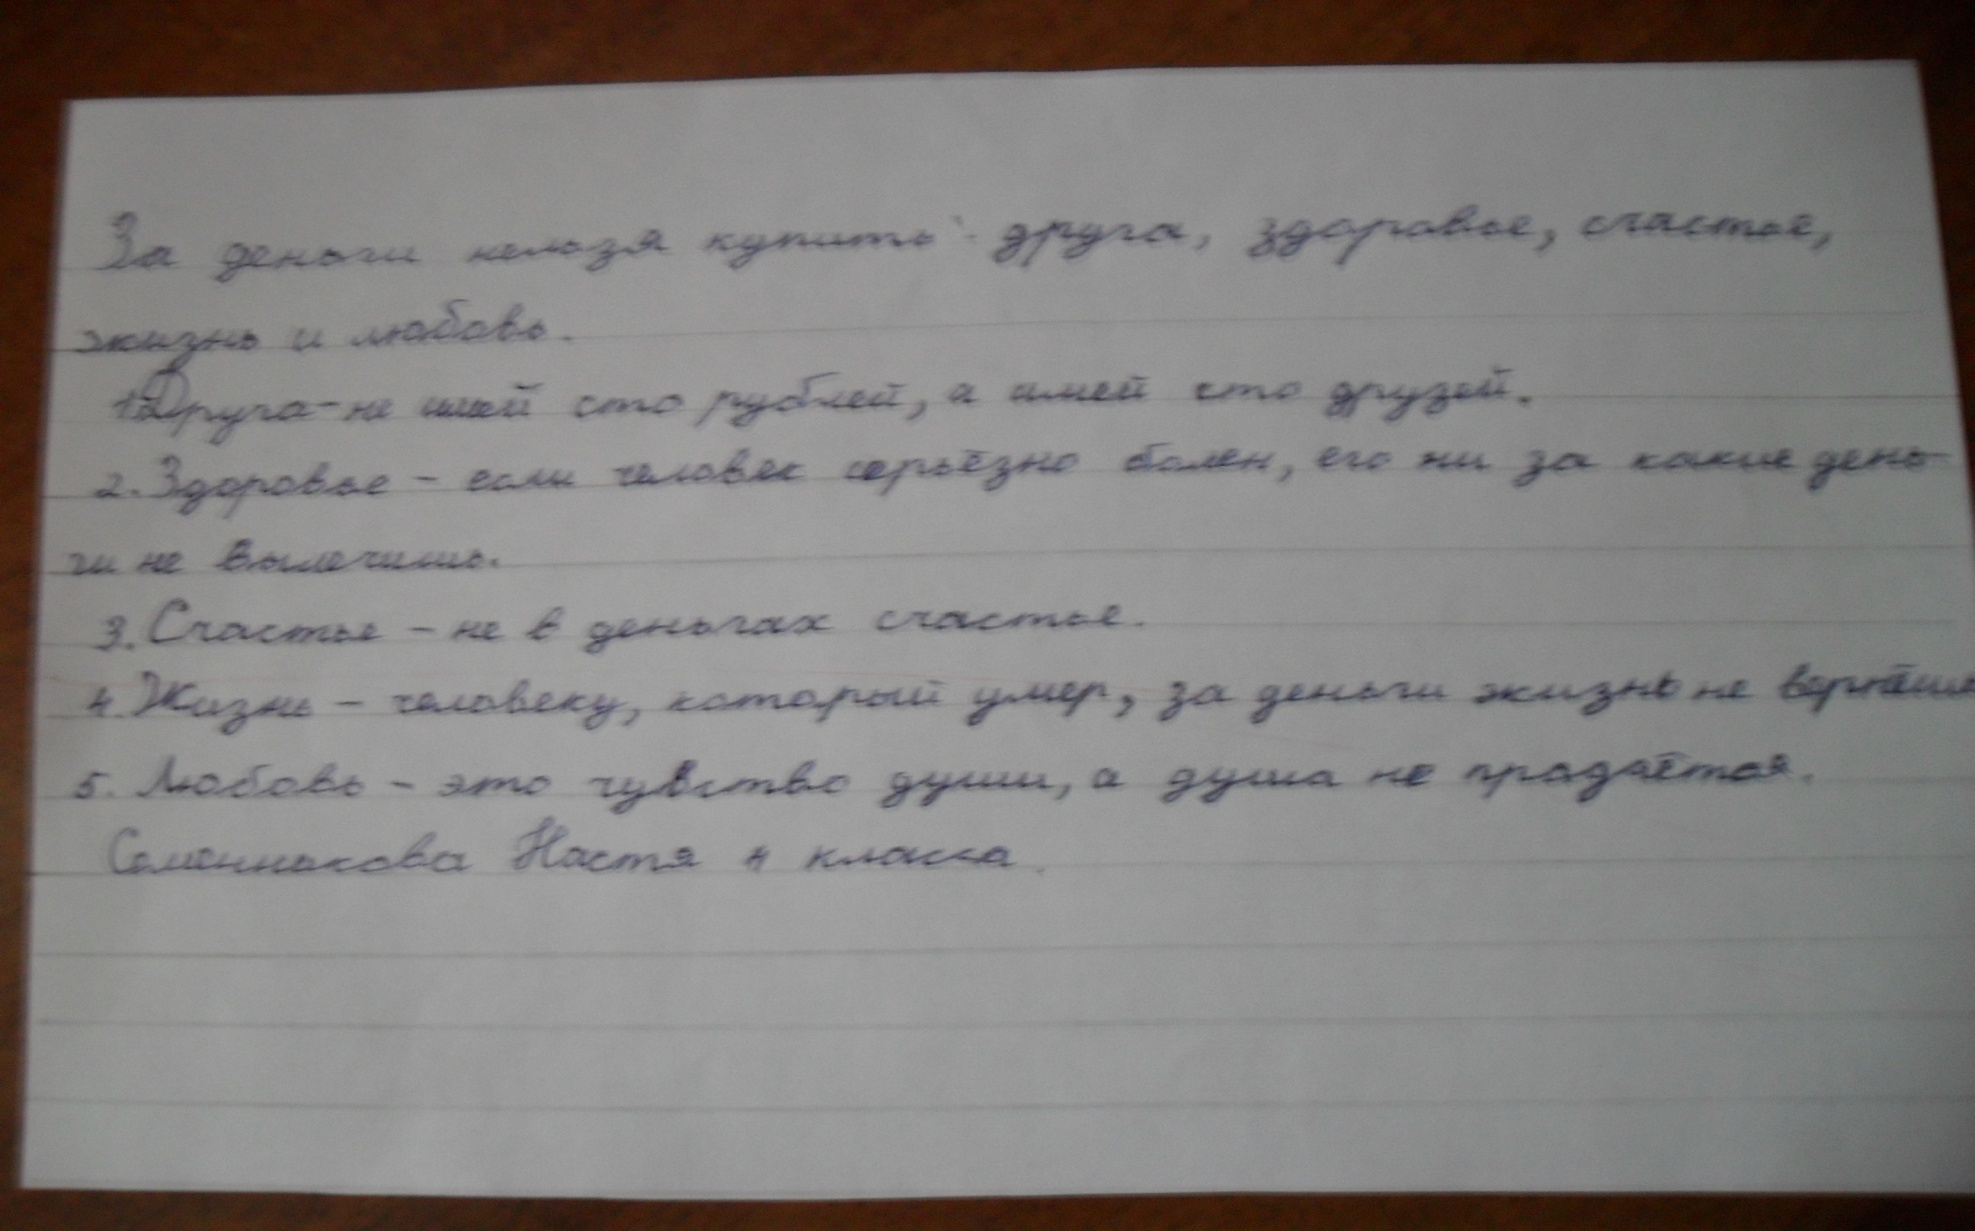 За деньги нельзя купить - друга, здоровье, счастье,
жизнь и любовь.
1. Друга - не имей сто рублей, а имей сто друзей.
2. Здоровье - если человек серьёзно болен, его ни за какие день-
ги не вылечишь.
3. Счастье - не в деньгах счастье.
4. Жизнь - человеку, который умер, за деньги жизнь не вернёшь
5. Любовь - это чувство души, а душа не продаётся.
Настя 4 класса.